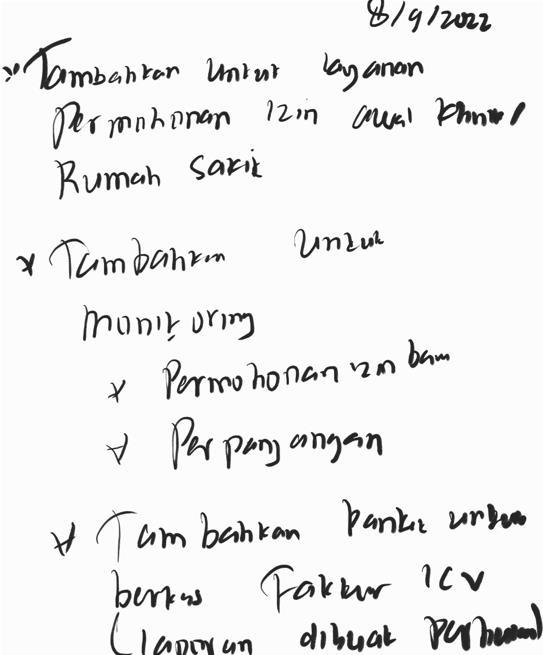 8/9/2022
* Tambahkan untuk layanan
Permohonan Izin awal
Rumah Sakit
* Tambahkan untuk
monitoring
* Permohonan izin baru
* Perpanjangan
* Tambahkan untuk
berkas Faktur ICV
(laporan dibuat